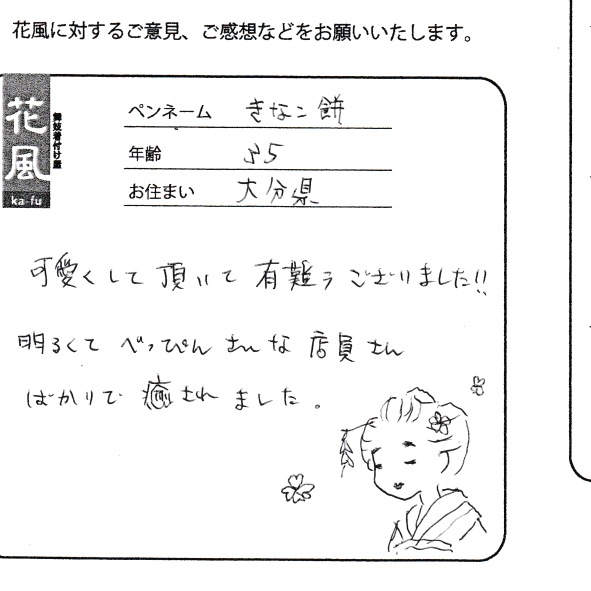 花風に対するご意見、ご感想などをお願いいたします。
花風
舞妓着付け屋
ka-fu
ペンネーム きなこ餅
年齢 35
お住まい 大分県
可愛くして頂いて有難うございました!!
明るくてべっぴんさんな店員さん
ばかりで癒されました。